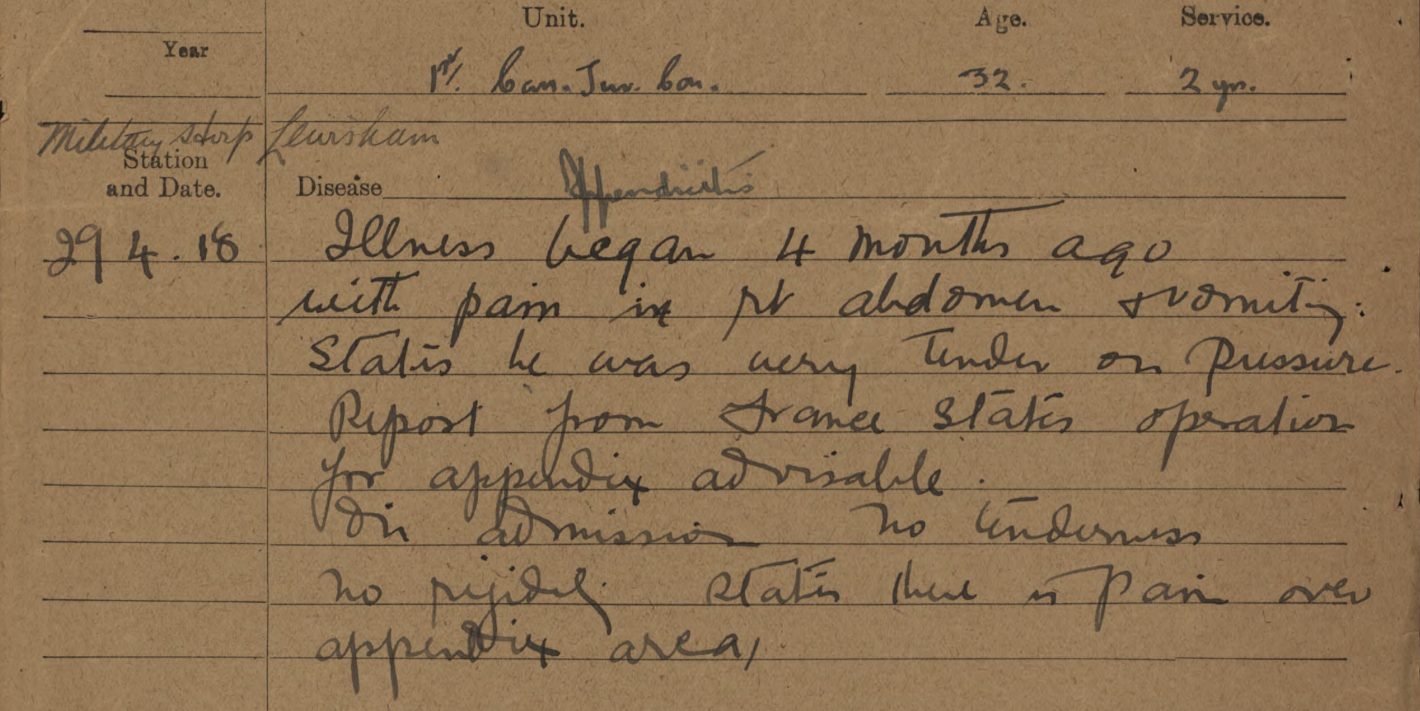 Unit. Age. Service.
Year
1st. Can. Tun. Coy. 32. 2 yrs.
Military Hosp Lewisham
Station
and Date. Disease Appendicitis
29 4. 18 Illness began 4 months ago
with pain in rt abdomen & vomiting.
States he was very tender on pressure.
Report from France states operation
for appendix advisable.
On admission no tenderness
no rigidity states there is pain over
appendix area,